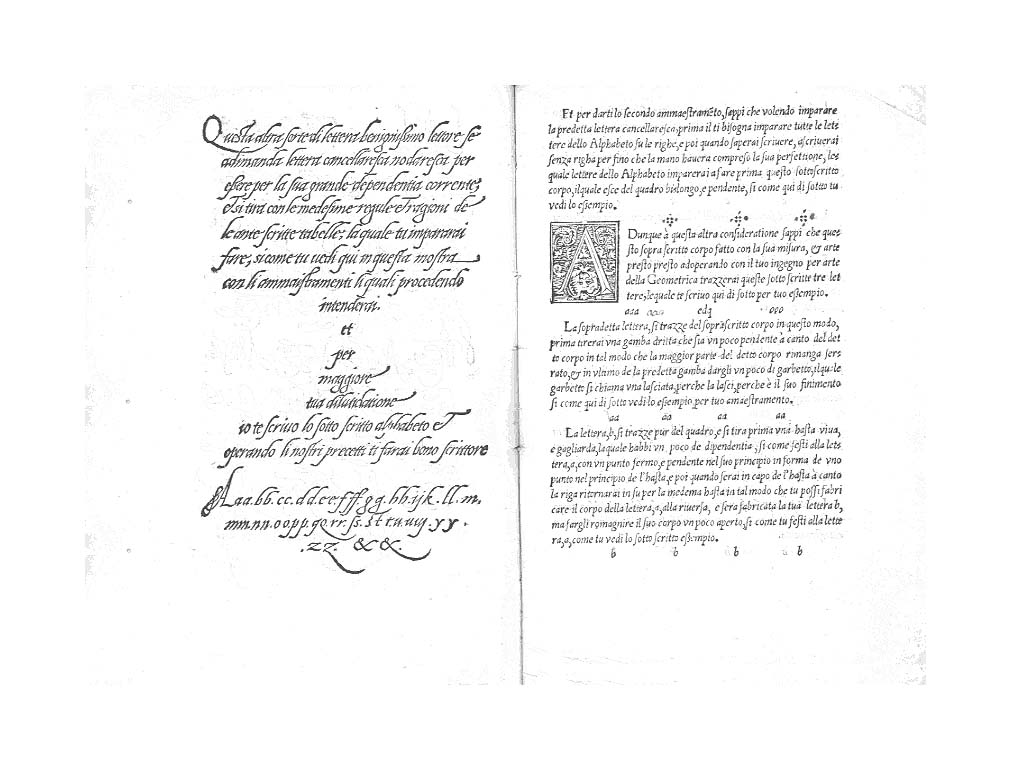 Questa altra sorte di lettera benignissimo lettore se
adimanda lettera cancellaresca nodaresca per
essere per la sua grande dependentia corrente;
et si tira con le medesime regule et ragioni de
le ante scritte tabelle; la quale tu impararai
fare; si come tu vedi qui in questa mostra
con li ammaistramenti li quali procedendo
intenderai.
et
per
maggiore
tua dilucidatione
io te scrivo lo sotto scritto alphabeto et
operando li nostri precetti ti farai bono scrittore
Aaa.bb.cc.dd.ee.fff.gg.hh.ijk.ll.m.
mm.nn.oopp.qq.rr.ſs.st tu.uu.yy.
.zz. &&.
Et per darti lo secondo ammaestramẽto, sappi che volendo imparare
la predetta lettera cancellaresca, prima il ti bisogna imparare tutte le let⸗
tere dello Alphabeto su le righe, e poi quando saperai scriuere, ascriuerai
senza righa per fino che la mano hauera compreso la sua persettione, les
quale lettere dello Alphabeto imparerai a fare prima questo sottoscritto
corpo, ilquale esce del quadro bislongo, e pendente, si come qui di sotto tu
vedi lo esempio.
ADunque à questa altra consideratione sappi che ques
sto sopra scritto corpo fatto con la sua misura, & arte
presto presto adoperando con il tuo ingegno per arte
della Geometrica trazzerai queste sotto scritte tre let
tere, lequale te scriuo qui di sotto per tuo essempio.
aaa edq ooo
La sopradetta lettera, si trazze del soprascritto corpo in questo modo,
prima tirerai vna gamba dritta che sia vn poco pendente à canto del det
to corpo in tal modo che la maggior parte del detto corpo rimanga ser⸗
rato, & in vltimo de la predetta gamba dargli vn poco di garbetto, ilquale
garbetto si chiama vna lasciata, perche la lasci, perche è il suo finimento
si come qui di sotto vedi lo essempio, per tuo amaestramento.
aa aa aa aa
La lettera, b, si trazze pur del quadro, e si tira prima vna hasta viua,
e gagliarda, laquale habbi vn poco de dipendentia, si come festi alla let⸗
tera, a, con vn punto fermo, e pendente nel suo principio in forma de vno
punto nel principio de l'hasta, e poi quando serai in capo de l'hasta à canto
la riga ritornarai in su per la medema hasta in tal modo che tu possi fabri
care il corpo della lettera, a, alla riuersa, e sera fabricata la tua lettera b,
ma fargli romagnire il suo corpo vn poco aperto, si come tu festi alla lette
ra, a, come tu vedi lo sotto scritto essempio.
b b b b